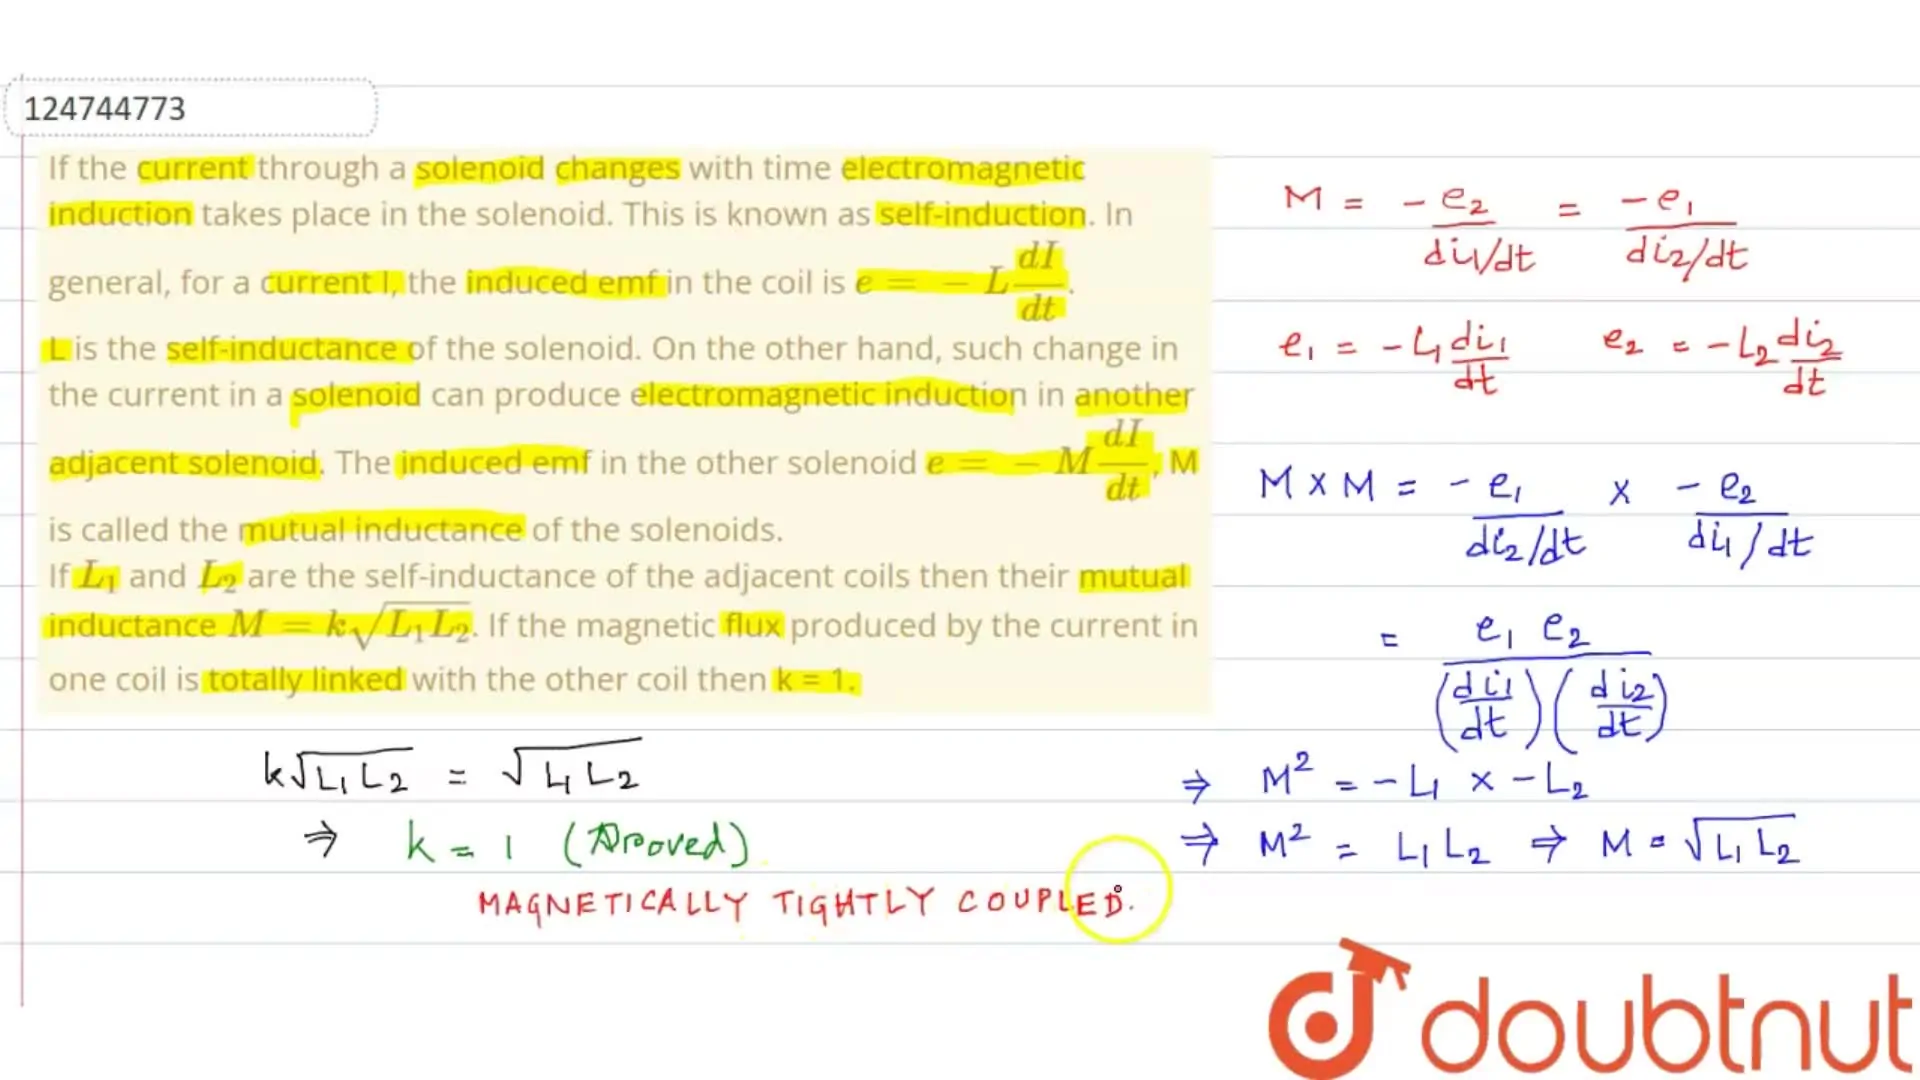 124744773
If the current through a solenoid changes with time electromagnetic
induction takes place in the solenoid. This is known as self-induction. In
general, for a current I, the induced emf in the coil is e = − L dI/dt.
L is the self-inductance of the solenoid. On the other hand, such change in
the current in a solenoid can produce electromagnetic induction in another
adjacent solenoid. The induced emf in the other solenoid e = − M dI/dt, M
is called the mutual inductance of the solenoids.
If L₁ and L₂ are the self-inductance of the adjacent coils then their mutual
inductance M = k√(L₁L₂). If the magnetic flux produced by the current in
one coil is totally linked with the other coil then k = 1.
k√(L₁L₂) = √(L₁L₂)
⇒ k = 1 (Proved)
MAGNETICALLY TIGHTLY COUPLED.
M = -e₂/(di₁/dt) = -e₁/(di₂/dt)
e₁ = -L₁ di₁/dt e₂ = -L₂ di₂/dt
M × M = -e₁/(di₂/dt) × -e₂/(di₁/dt)
= e₁ e₂/((di₁/dt)(di₂/dt))
⇒ M² = -L₁ × -L₂
⇒ M² = L₁ L₂ ⇒ M = √(L₁ L₂)
doubtnut